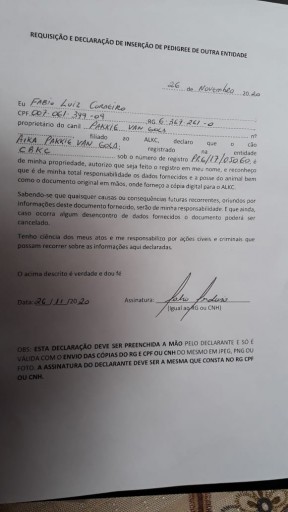 REQUISIÇÃO E DECLARAÇÃO DE INSERÇÃO DE PEDIGREE DE OUTRA ENTIDADE
26 de Novembro 2020
Eu Fabio Luiz Cordeiro
CPF 007.061.399-09 RG 6.367.261-0
proprietário do canil PAKKIE VAN GOLD nº
filiado ao ALKC, declaro que o cão
AIKA PAKKIE VAN GOLD, registrado na entidade
CBKC sob o número de registro PRG/17/05060, é
de minha propriedade, autorizo que seja feito o registro em meu nome, e reconheço
que é de minha total responsabilidade os dados fornecidos e a posse do animal bem
como o documento original em mãos, onde forneço a cópia digital para o ALKC.
Sabendo-se que quaisquer causas ou consequências futuras recorrentes, oriundos por
informações deste documento fornecido, serão de minha responsabilidade. E que ainda,
caso ocorra algum desencontro de dados fornecidos o documento poderá ser
cancelado.
Tenho ciência dos meus atos e me responsabilizo por ações civeis e criminais que
possam recorrer sobre as informações aqui declaradas.
O acima descrito é verdade e dou fé
Data: 26/11/2020 Assinatura:
(Igual ao RG ou CNH)
OBS: ESTA DECLARAÇÃO DEVE SER PREENCHIDA A MÃO PELO DECLARANTE E SO É
VÁLIDA COM O ENVIO DAS CÓPIAS DO RG E CPF OU CNH DO MESMO EM JPEG, PNG OU
FOTO. A ASSINATURA DO DECLARANTE DEVE SER A MESMA QUE CONSTA NO RG CPF
OU CNH.